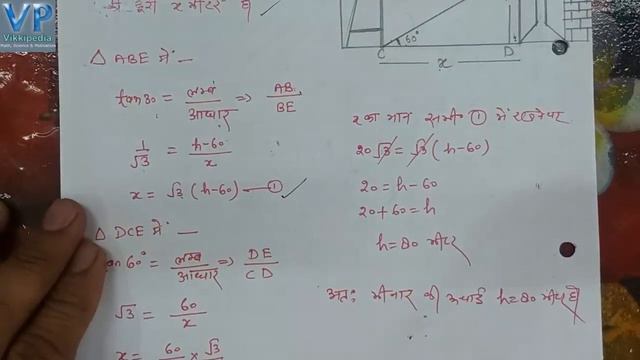 VP
Vikkipedia
Math, Science & Motivation
x मीटर है
C 60° D
x
△ ABE में —
tan30 = लम्ब/आधार ⇒ AB/BE
1/√3 = h-60/x
x = √3 (h-60) — ①
△ DCE में —
tan 60° = लम्ब/आधार ⇒ DE/CD
√3 = 60/x
x = 60/ × √3/
x का मान समी० ① में रखने पर
20√3 = √3 (h-60)
20 = h-60
20+60 = h
h = 80 मीटर
अतः मीनार की ऊचाई h=80 मीटर है